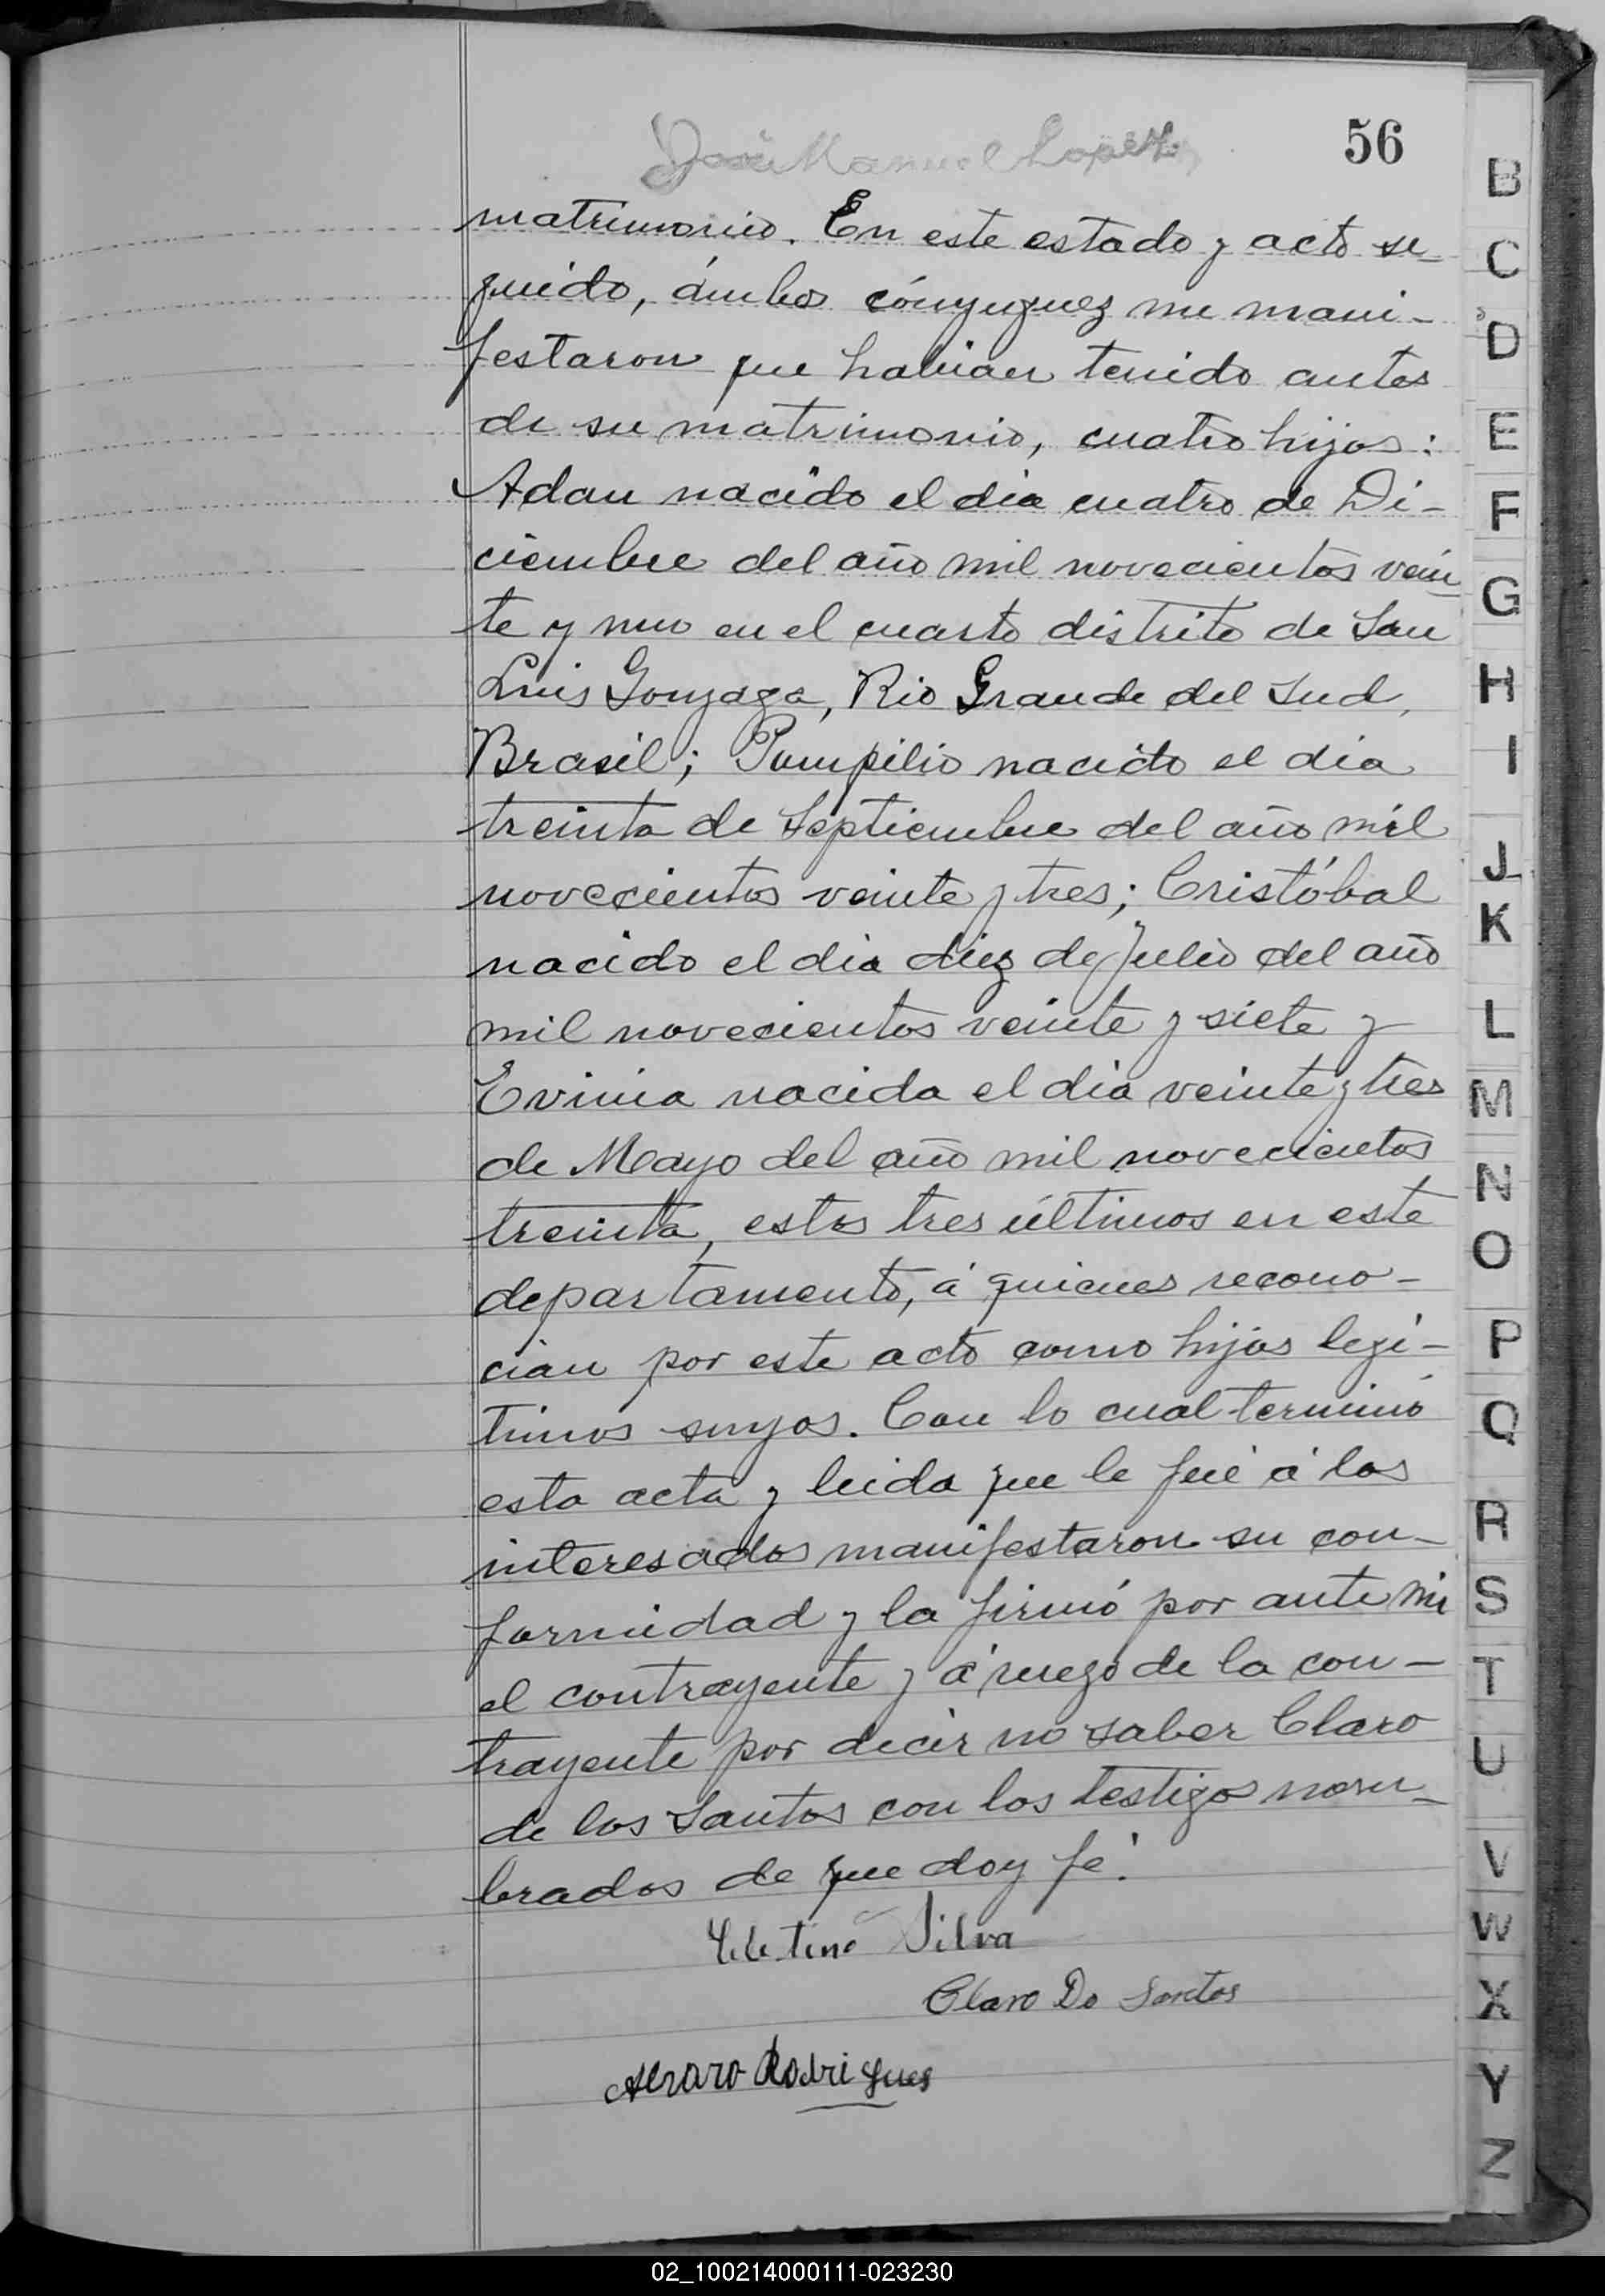 José Manuel Lopez
56
matrimonio. En este estado y acto se-
guido, ámbos cónyuguez me mani-
festaron que habian tenido antes
de su matrimonio, cuatro hijos:
Adan nacido el dia cuatro de Di-
ciembre del año mil novecientos vein
te y uno en el cuarto distrito de San
Luis Gonzaga, Rio Grande del Sud,
Brasil; Pompilio nacido el dia
treinta de Septiembre del año mil
novecientos veinte y tres; Cristóbal
nacido el dia diez de Julio del año
mil novecientos veinte y siete y
Evinia nacida el dia veinte y tres
de Mayo del año mil novecientos
treinta, estos tres últimos en este
departamento, á quienes recono-
cian por este acto como hijos legi-
timos suyos. Con lo cual terminó
esta acta y leida que le fué á los
interesados manifestaron su con-
formidad y la firmó por ante mi
el contrayente y á ruego de la con-
trayente por decir no saber Claro
de los Santos con los testigos nom-
brados de que doy fé.
Silva
Claro Do Santos
Alvaro Rodrigues
B
C
D
E
F
G
H
I
J
K
L
M
N
O
P
Q
R
S
T
U
V
W
X
Y
Z
02_100214000111-023230